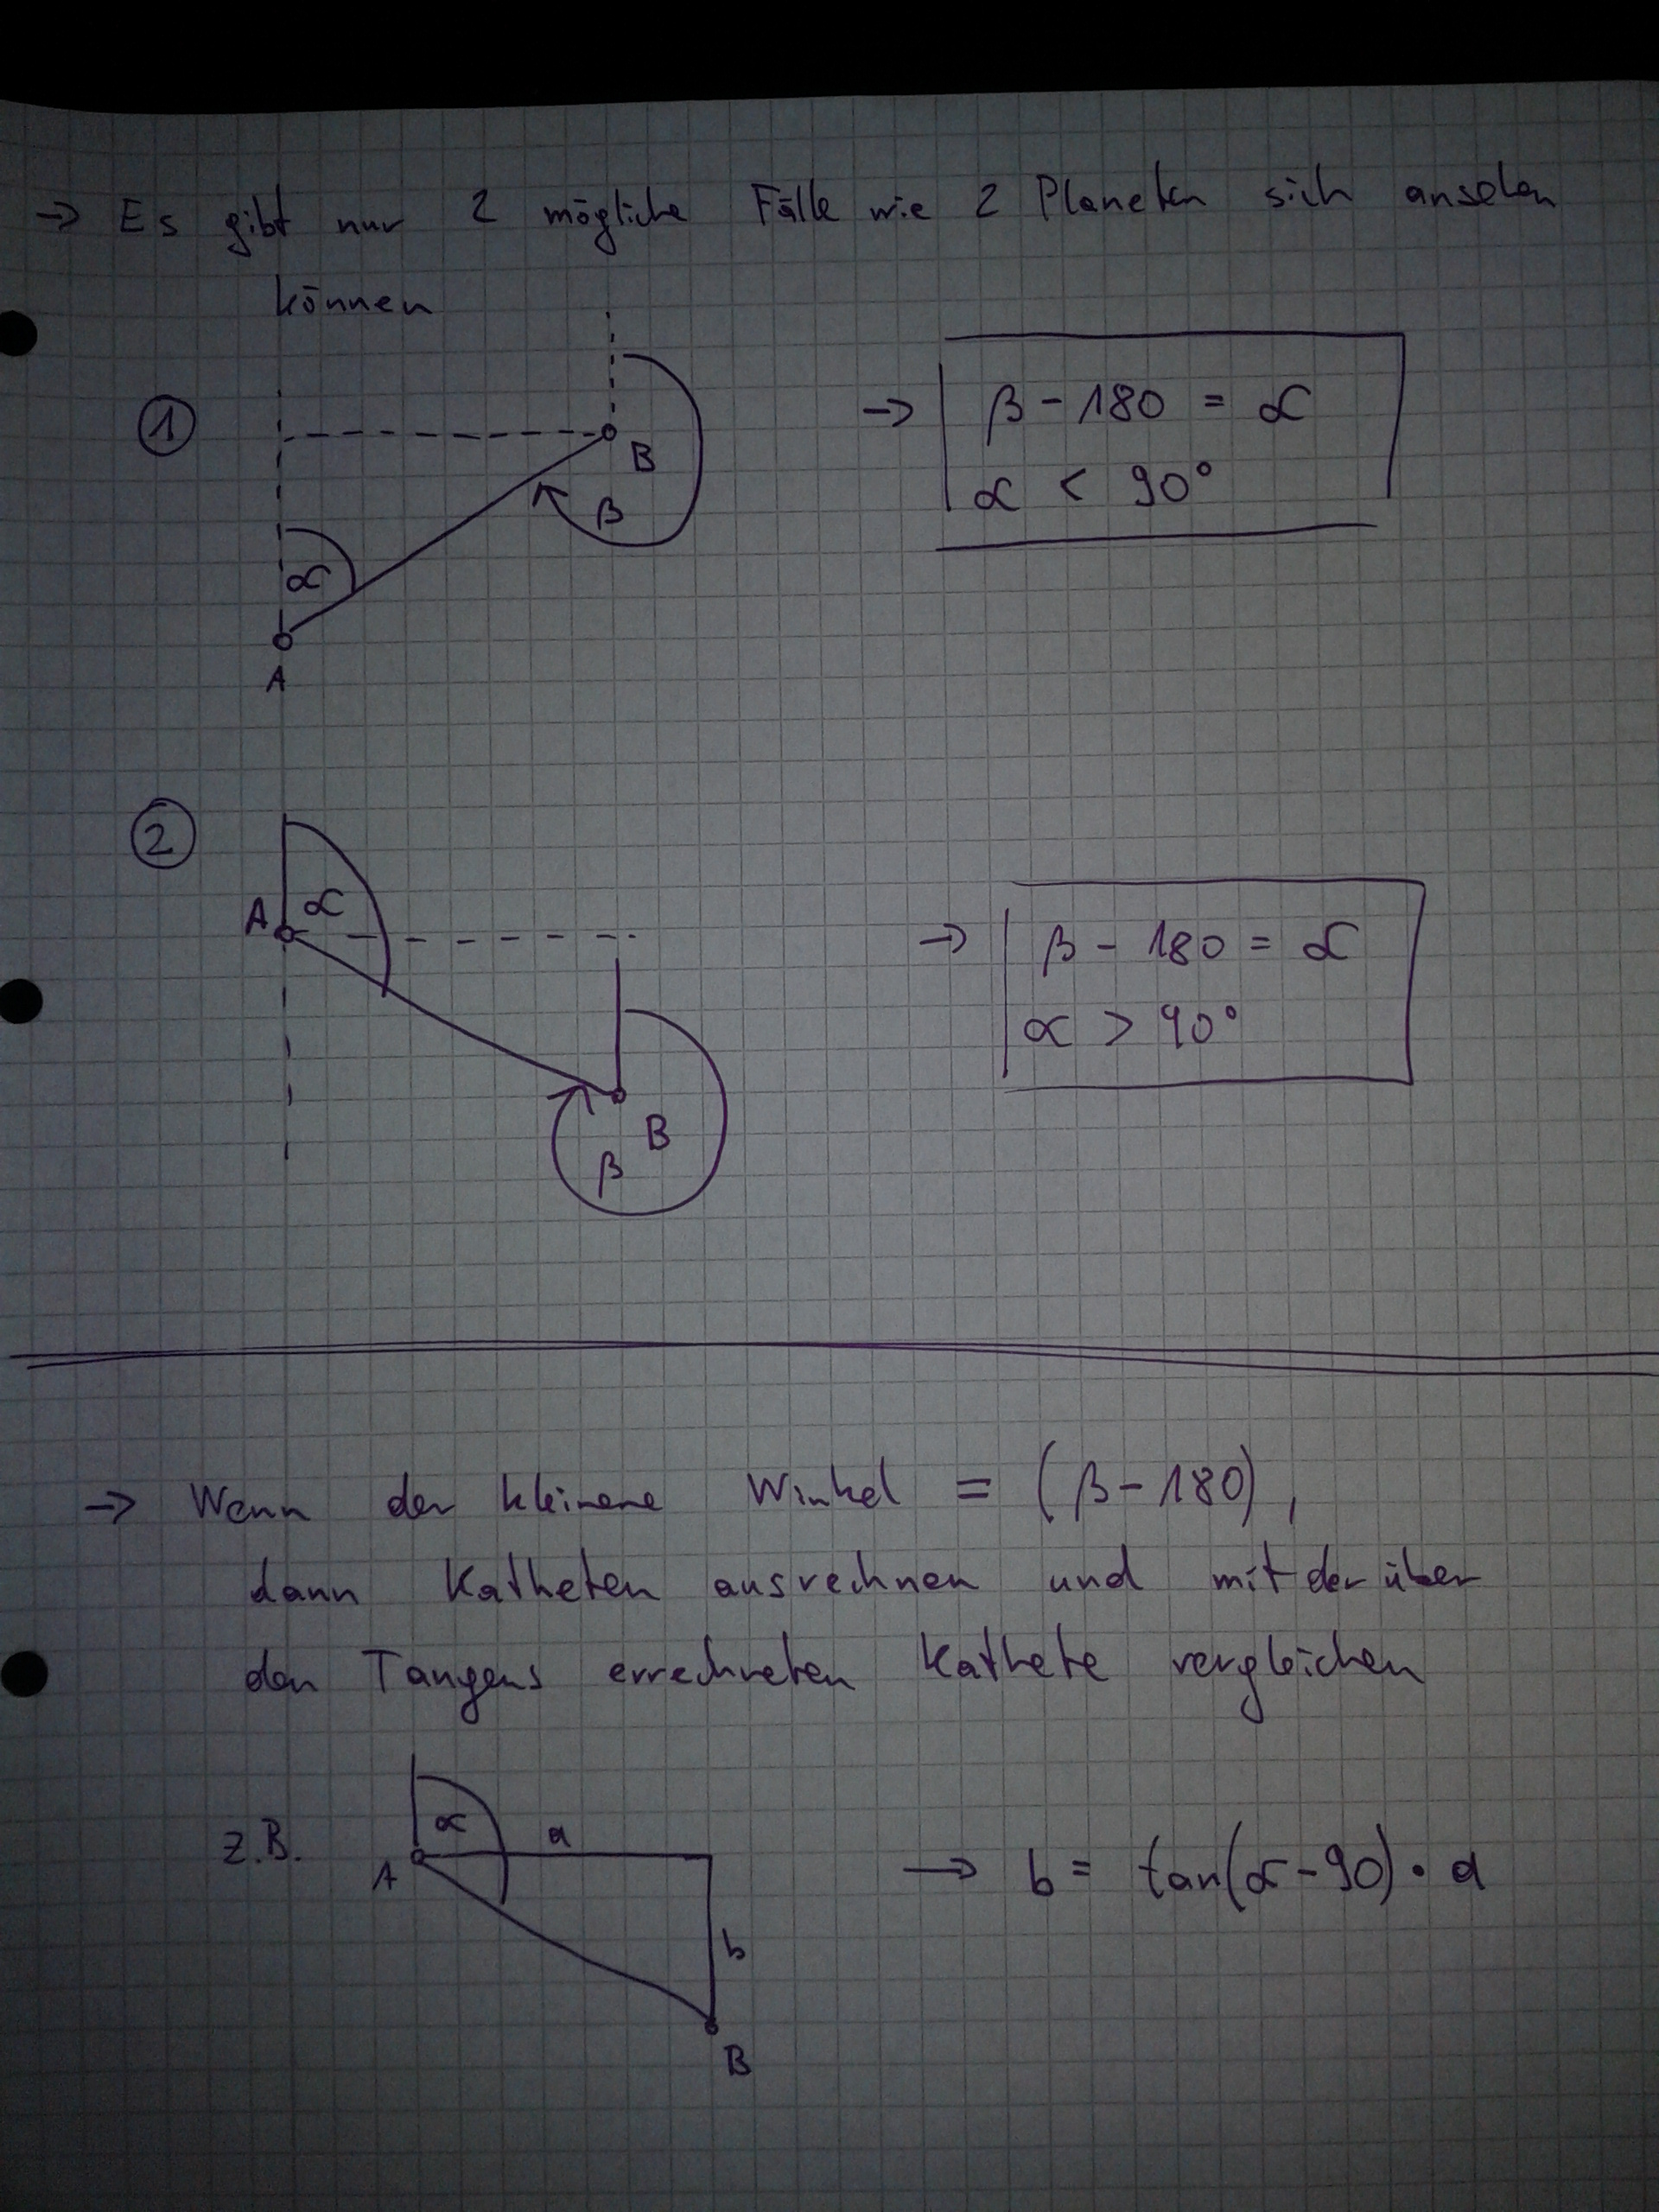 → Es gibt nur 2 mögliche Fälle wie 2 Planeten sich ansehen
können
① B → β - 180 = α
β α < 90°
α
A
② A α → β - 180 = α
α > 90°
B
β
→ Wenn der kleinere Winkel = (β - 180),
dann Katheten ausrechnen und mit der über
den Tangens errechneten Kathete vergleichen
z.B. A α a → b = tan(α - 90) · a
b
B